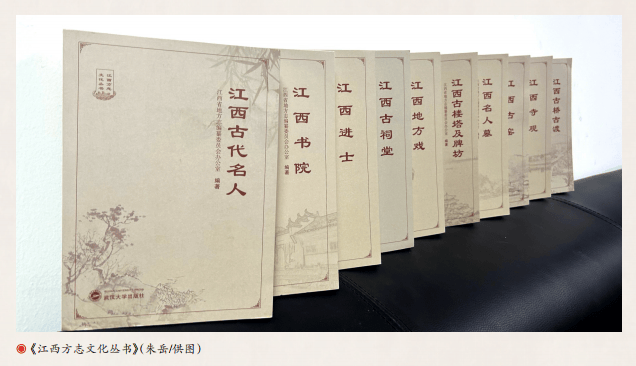 江西古代名人
江西省地方志编纂委员会办公室 编著
武汉大学出版社
江西书院
江西进士
江西古祠堂
江西地方戏
江西古楼塔及牌坊
江西名人墓
江西寺观
江西古桥古渡
《江西方志文化丛书》(朱岳/供图)